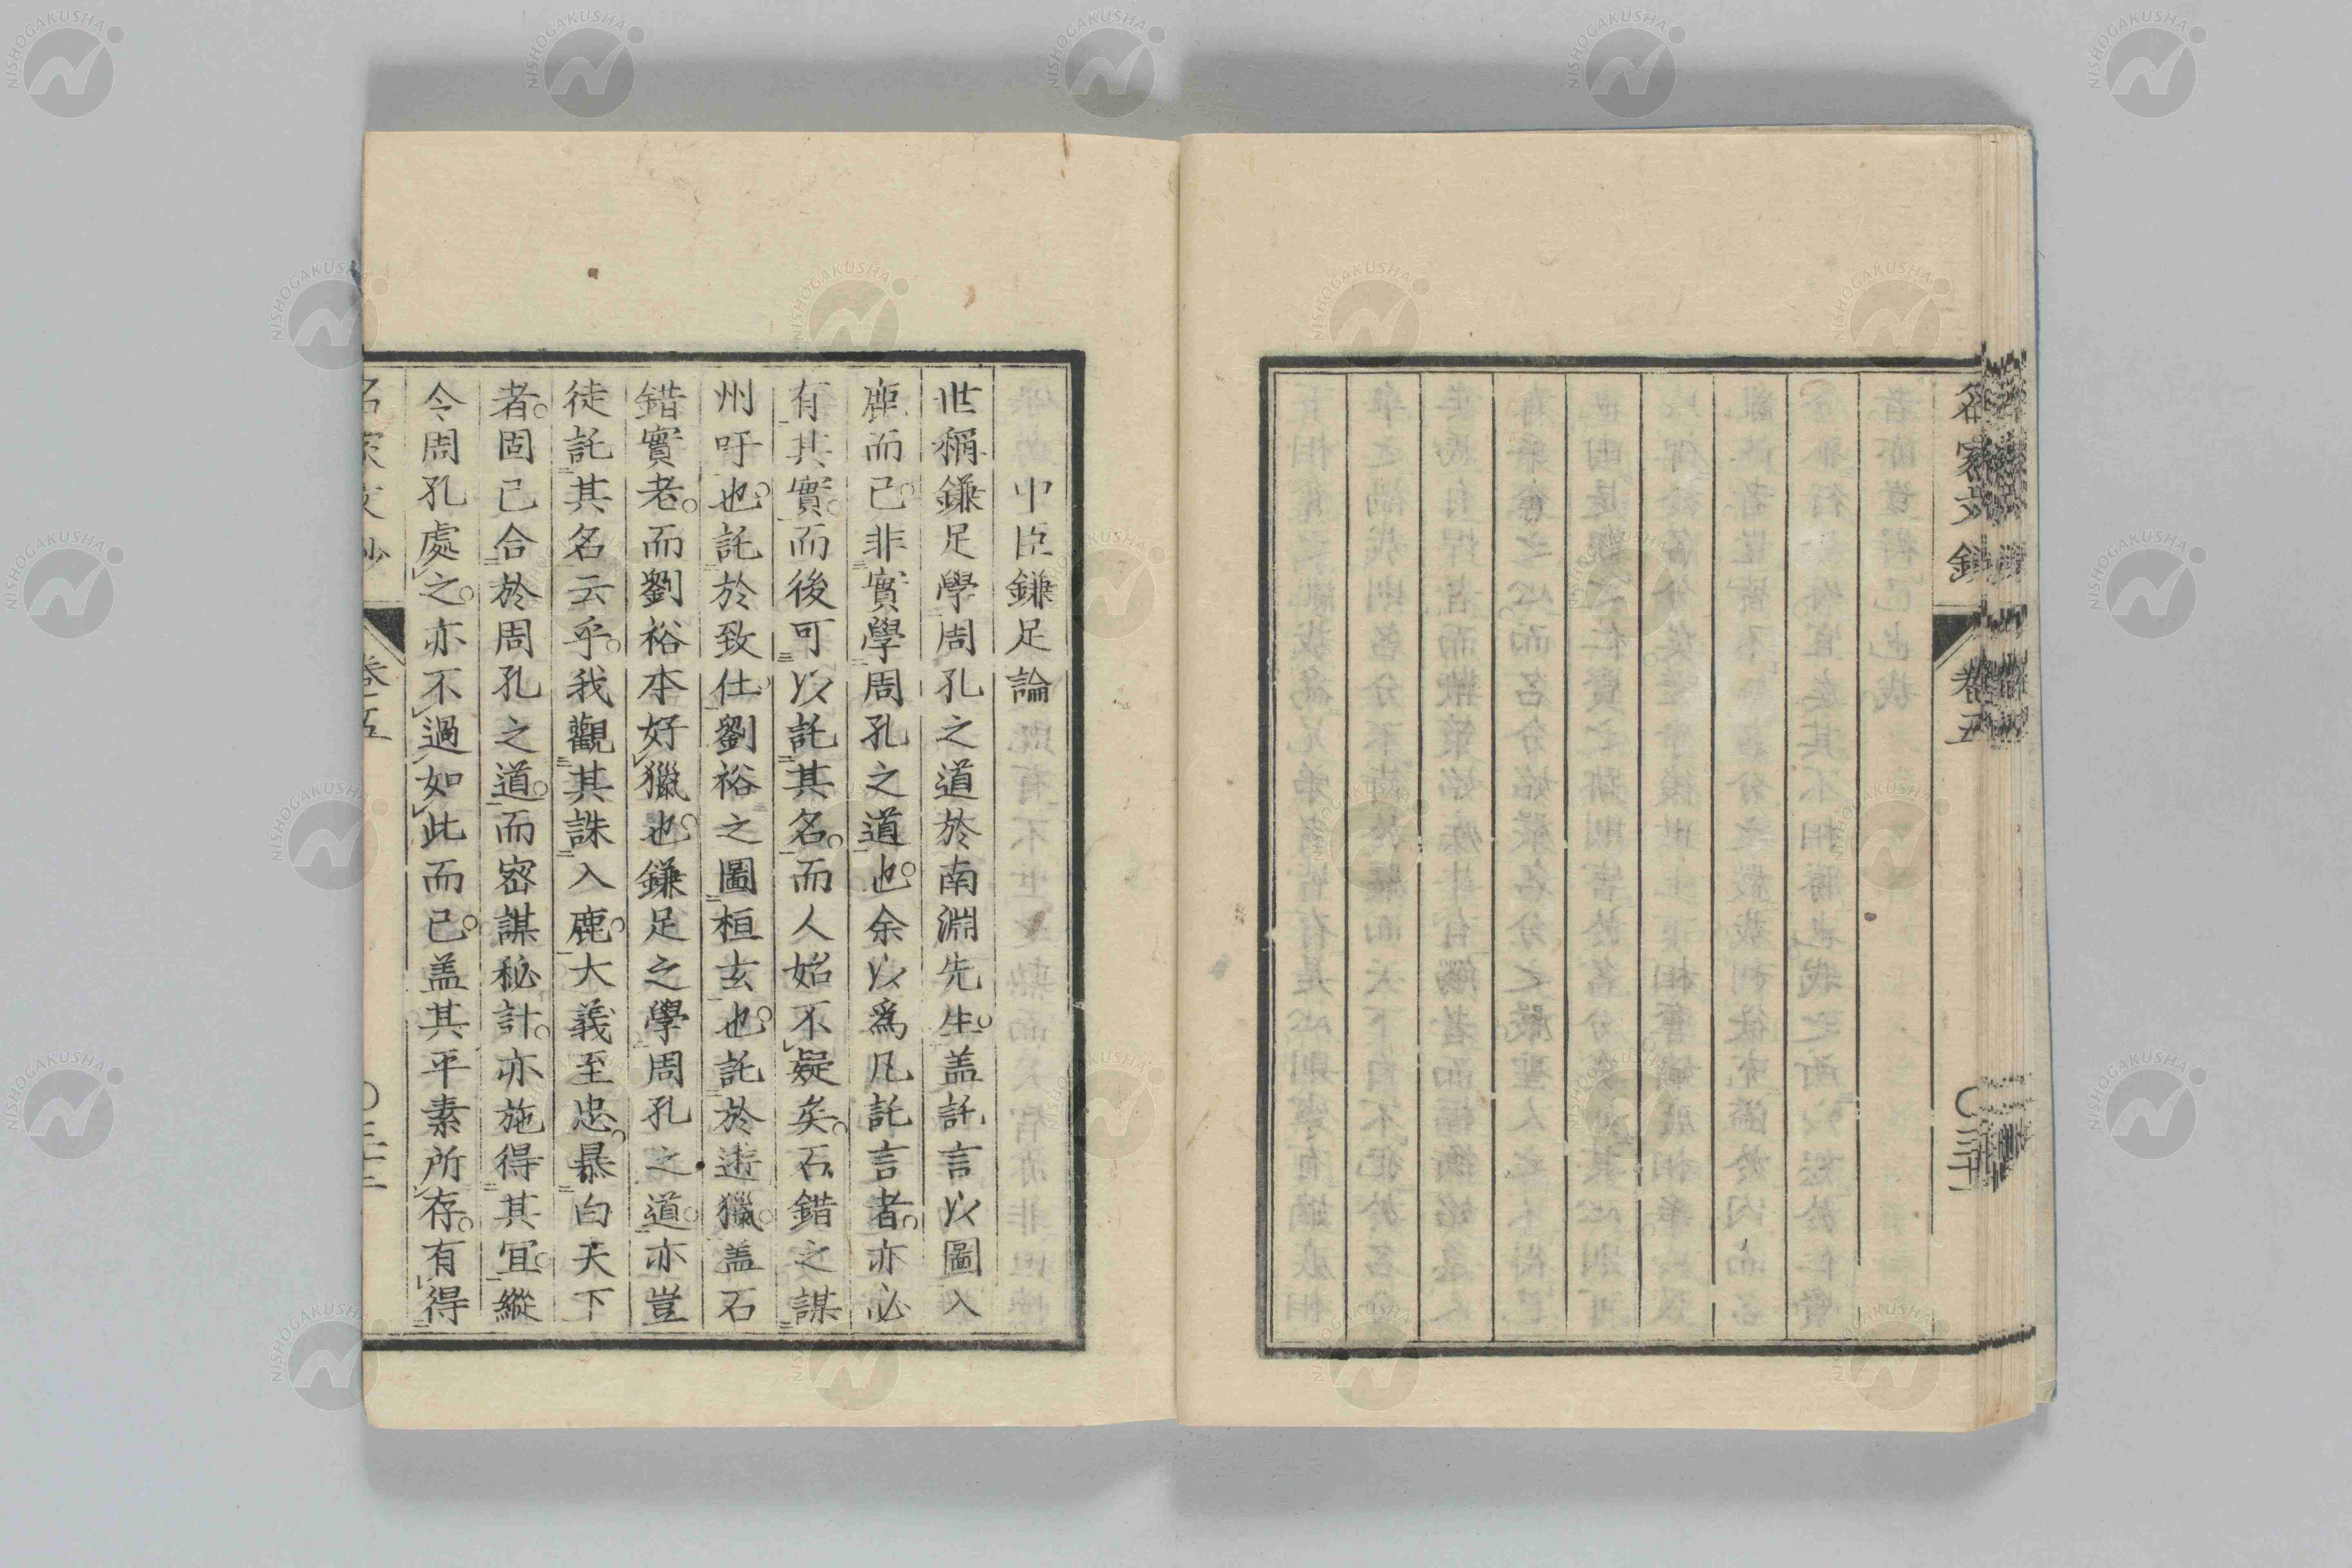 名家文鈔
卷五
中臣鎌足論
世稱鎌足學周孔之道於南淵先生盖託言以圖入
鹿而已非實學周孔之道也余以爲凡託言者亦必
有其實而後可以託其名而人始不疑矣石錯之謀
州吁也託於致仕劉裕之圖桓玄也託於遊獵盖石
錯實老而劉裕本好獵也鎌足之學周孔之道亦豈
徒託其名云乎我觀其誅入鹿大義至忠暴白天下
者固已合於周孔之道而密謀秘計亦施得其宜縱
令周孔處之亦不過如此而已盖其平素所存有得
名家文鈔
卷五
NISHOGAKUSHA